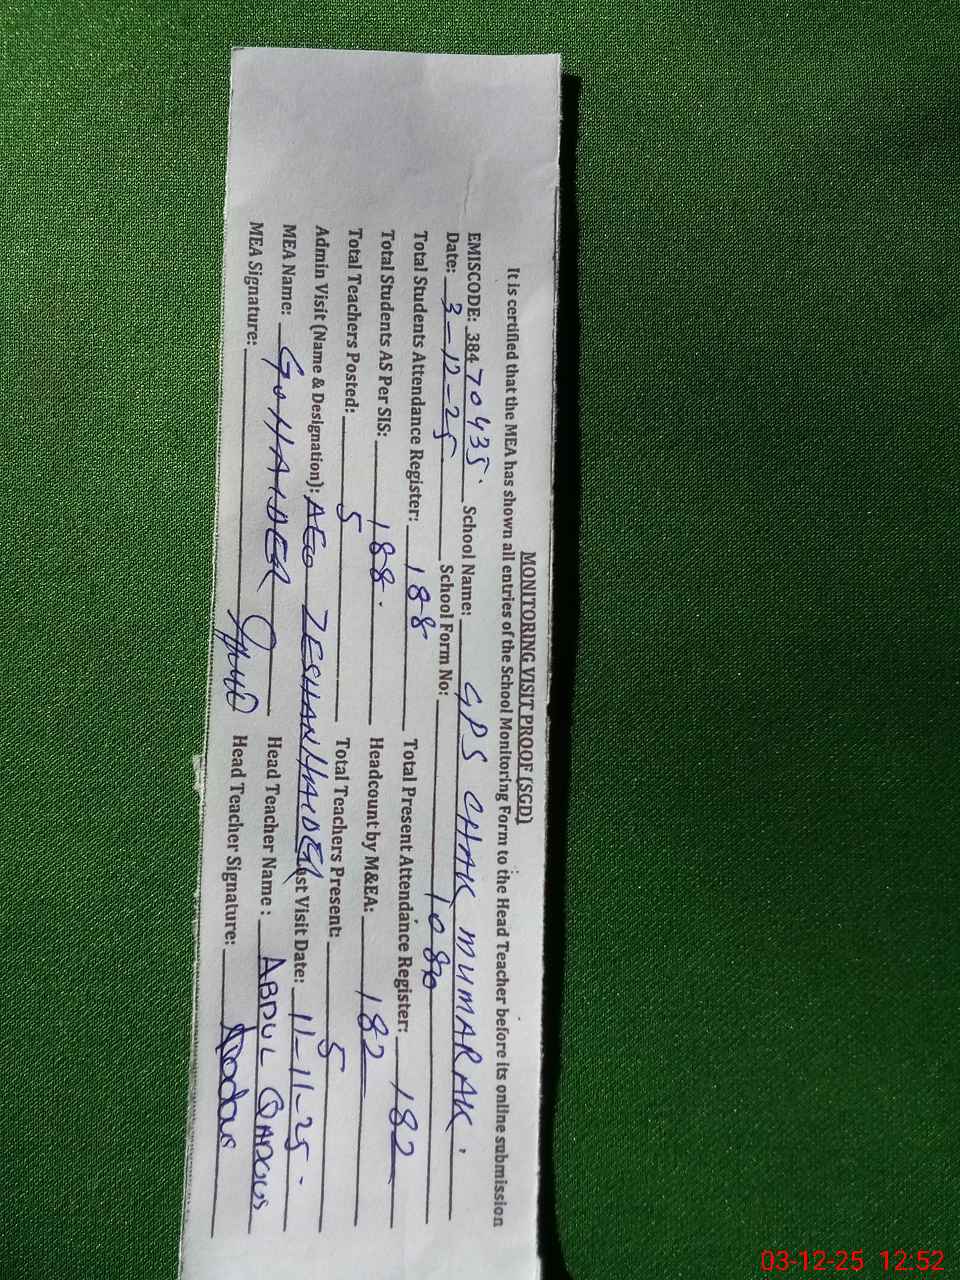 MONITORING VISIT PROOF (SGD)
It is certified that the MEA has shown all entries of the School Monitoring Form to the Head Teacher before its online submission
EMISCODE: 38470435 School Name: GPS CHAK MUMARAK
Date: 3-12-25 School Form No: 1080
Total Students Attendance Register: 188 Total Present Attendance Register: 182
Total Students AS Per SIS: 188 Headcount by M&EA: 182
Total Teachers Posted: 5 Total Teachers Present: 5
Admin Visit (Name & Designation): AEO ZESHAN HAIDER Last Visit Date: 11-11-25
MEA Name: G.HAIDER Head Teacher Name : ABDUL QADOUS
MEA Signature: Head Teacher Signature:
03-12-25 12:52